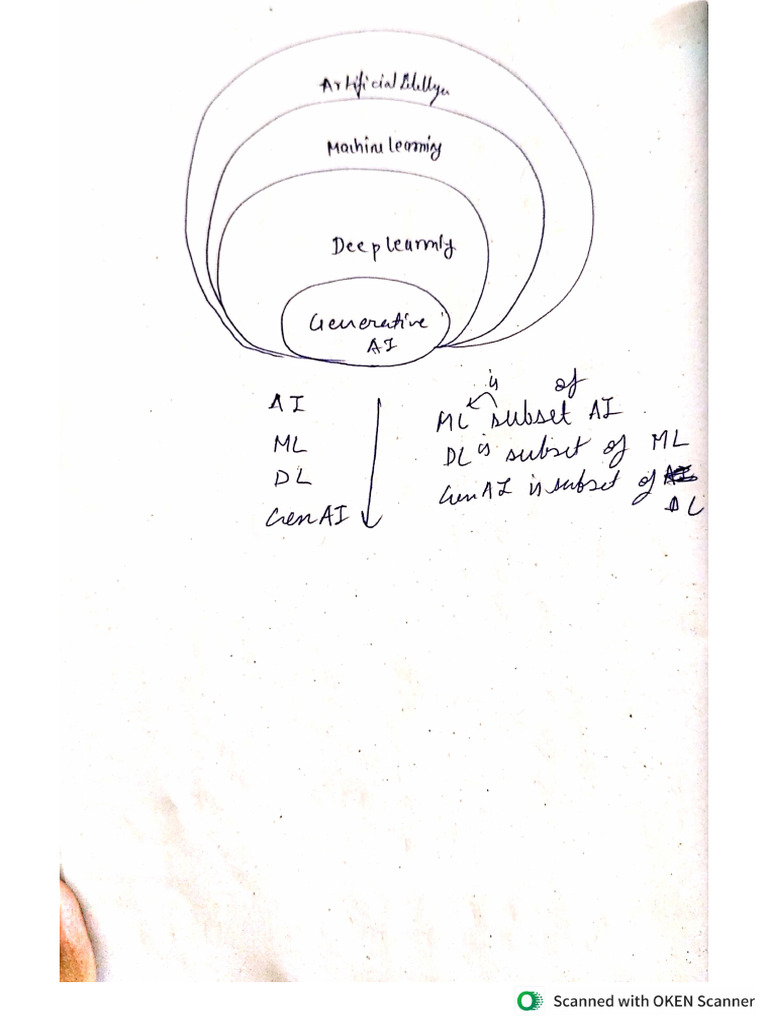 Artificial
Machine learning
Deep learning
Generative
AI
AI
ML
DL
Gen AI
is of
ML subset AI
DL is subset of ML
Gen AI is subset of
DL
Scanned with OKEN Scanner